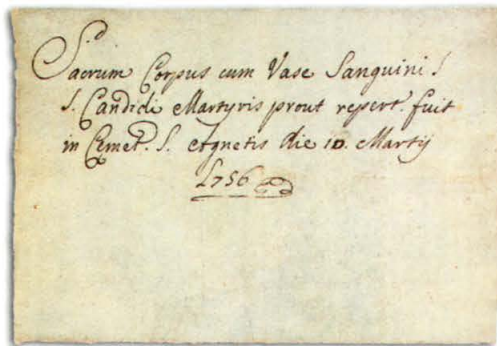 Sacrum Corpus cum Vase Sanguini s
S. Candidi Martyris prout repert. fuit
in Cemet. S. Agnetis die 10. Martij
1756